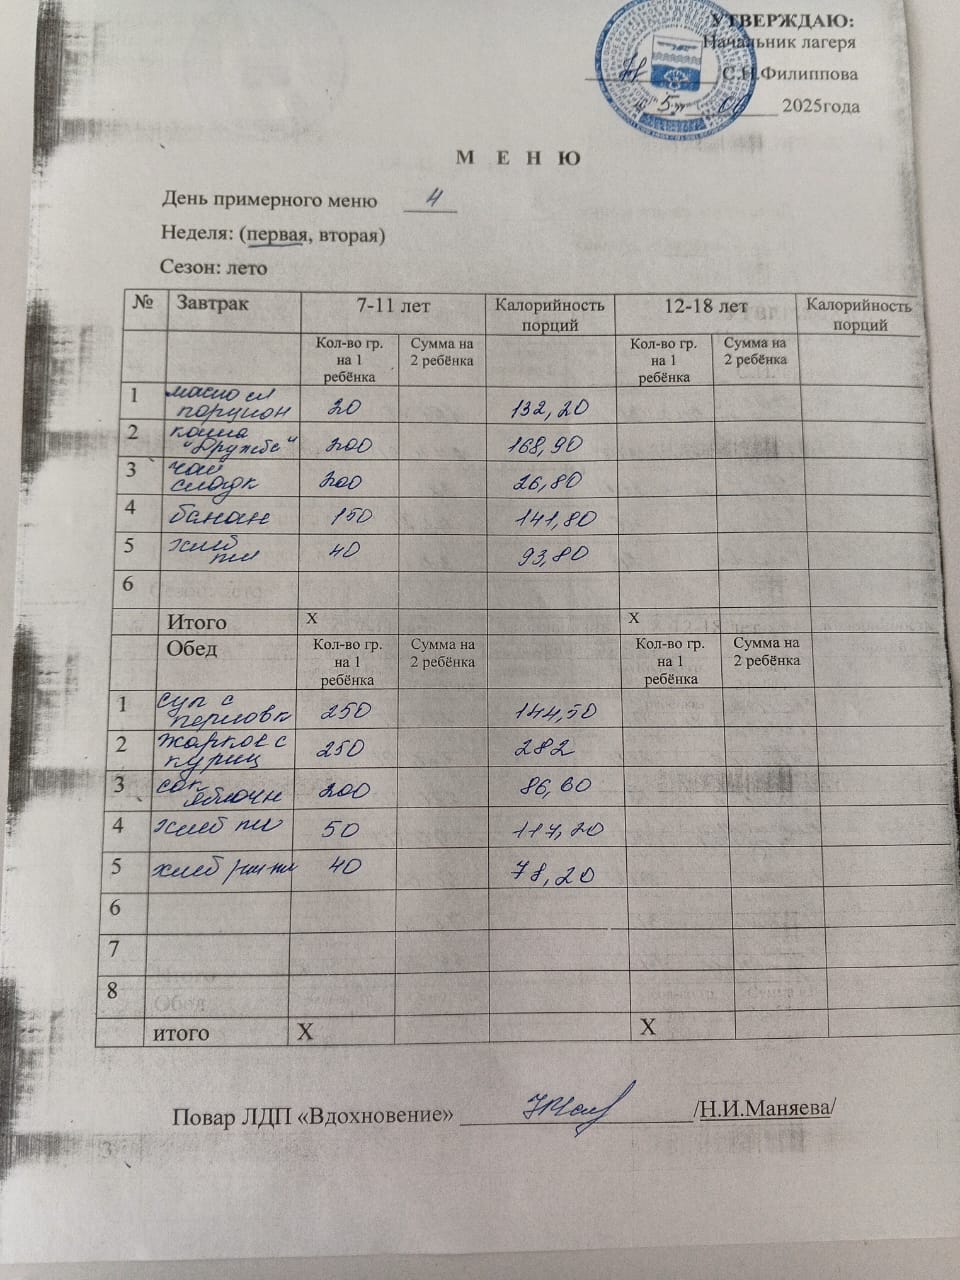 УТВЕРЖДАЮ:
Начальник лагеря
С.Н.Филиппова
"5" 06 2025года
М Е Н Ю
День примерного меню 4
Неделя: (первая, вторая)
Сезон: лето
№ Завтрак 7-11 лет Калорийность порций 12-18 лет Калорийность порций
Кол-во гр. на 1 ребёнка Сумма на 2 ребёнка Кол-во гр. на 1 ребёнка Сумма на 2 ребёнка
1 масло сл порцион 20 132,20
2 каша "Дружба" 200 168,90
3 чай сладк 200 26,80
4 банан 150 141,80
5 хлеб пш 40 93,80
6
Итого X X
Обед Кол-во гр. на 1 ребёнка Сумма на 2 ребёнка Кол-во гр. на 1 ребёнка Сумма на 2 ребёнка
1 суп с перловк 250 144,50
2 жаркое с куриц 250 282
3 сок яблочн 200 86,60
4 хлеб пш 50 117,20
5 хлеб 40 78,20
6
7
8
итого X X
Повар ЛДП «Вдохновение» /Н.И.Маняева/